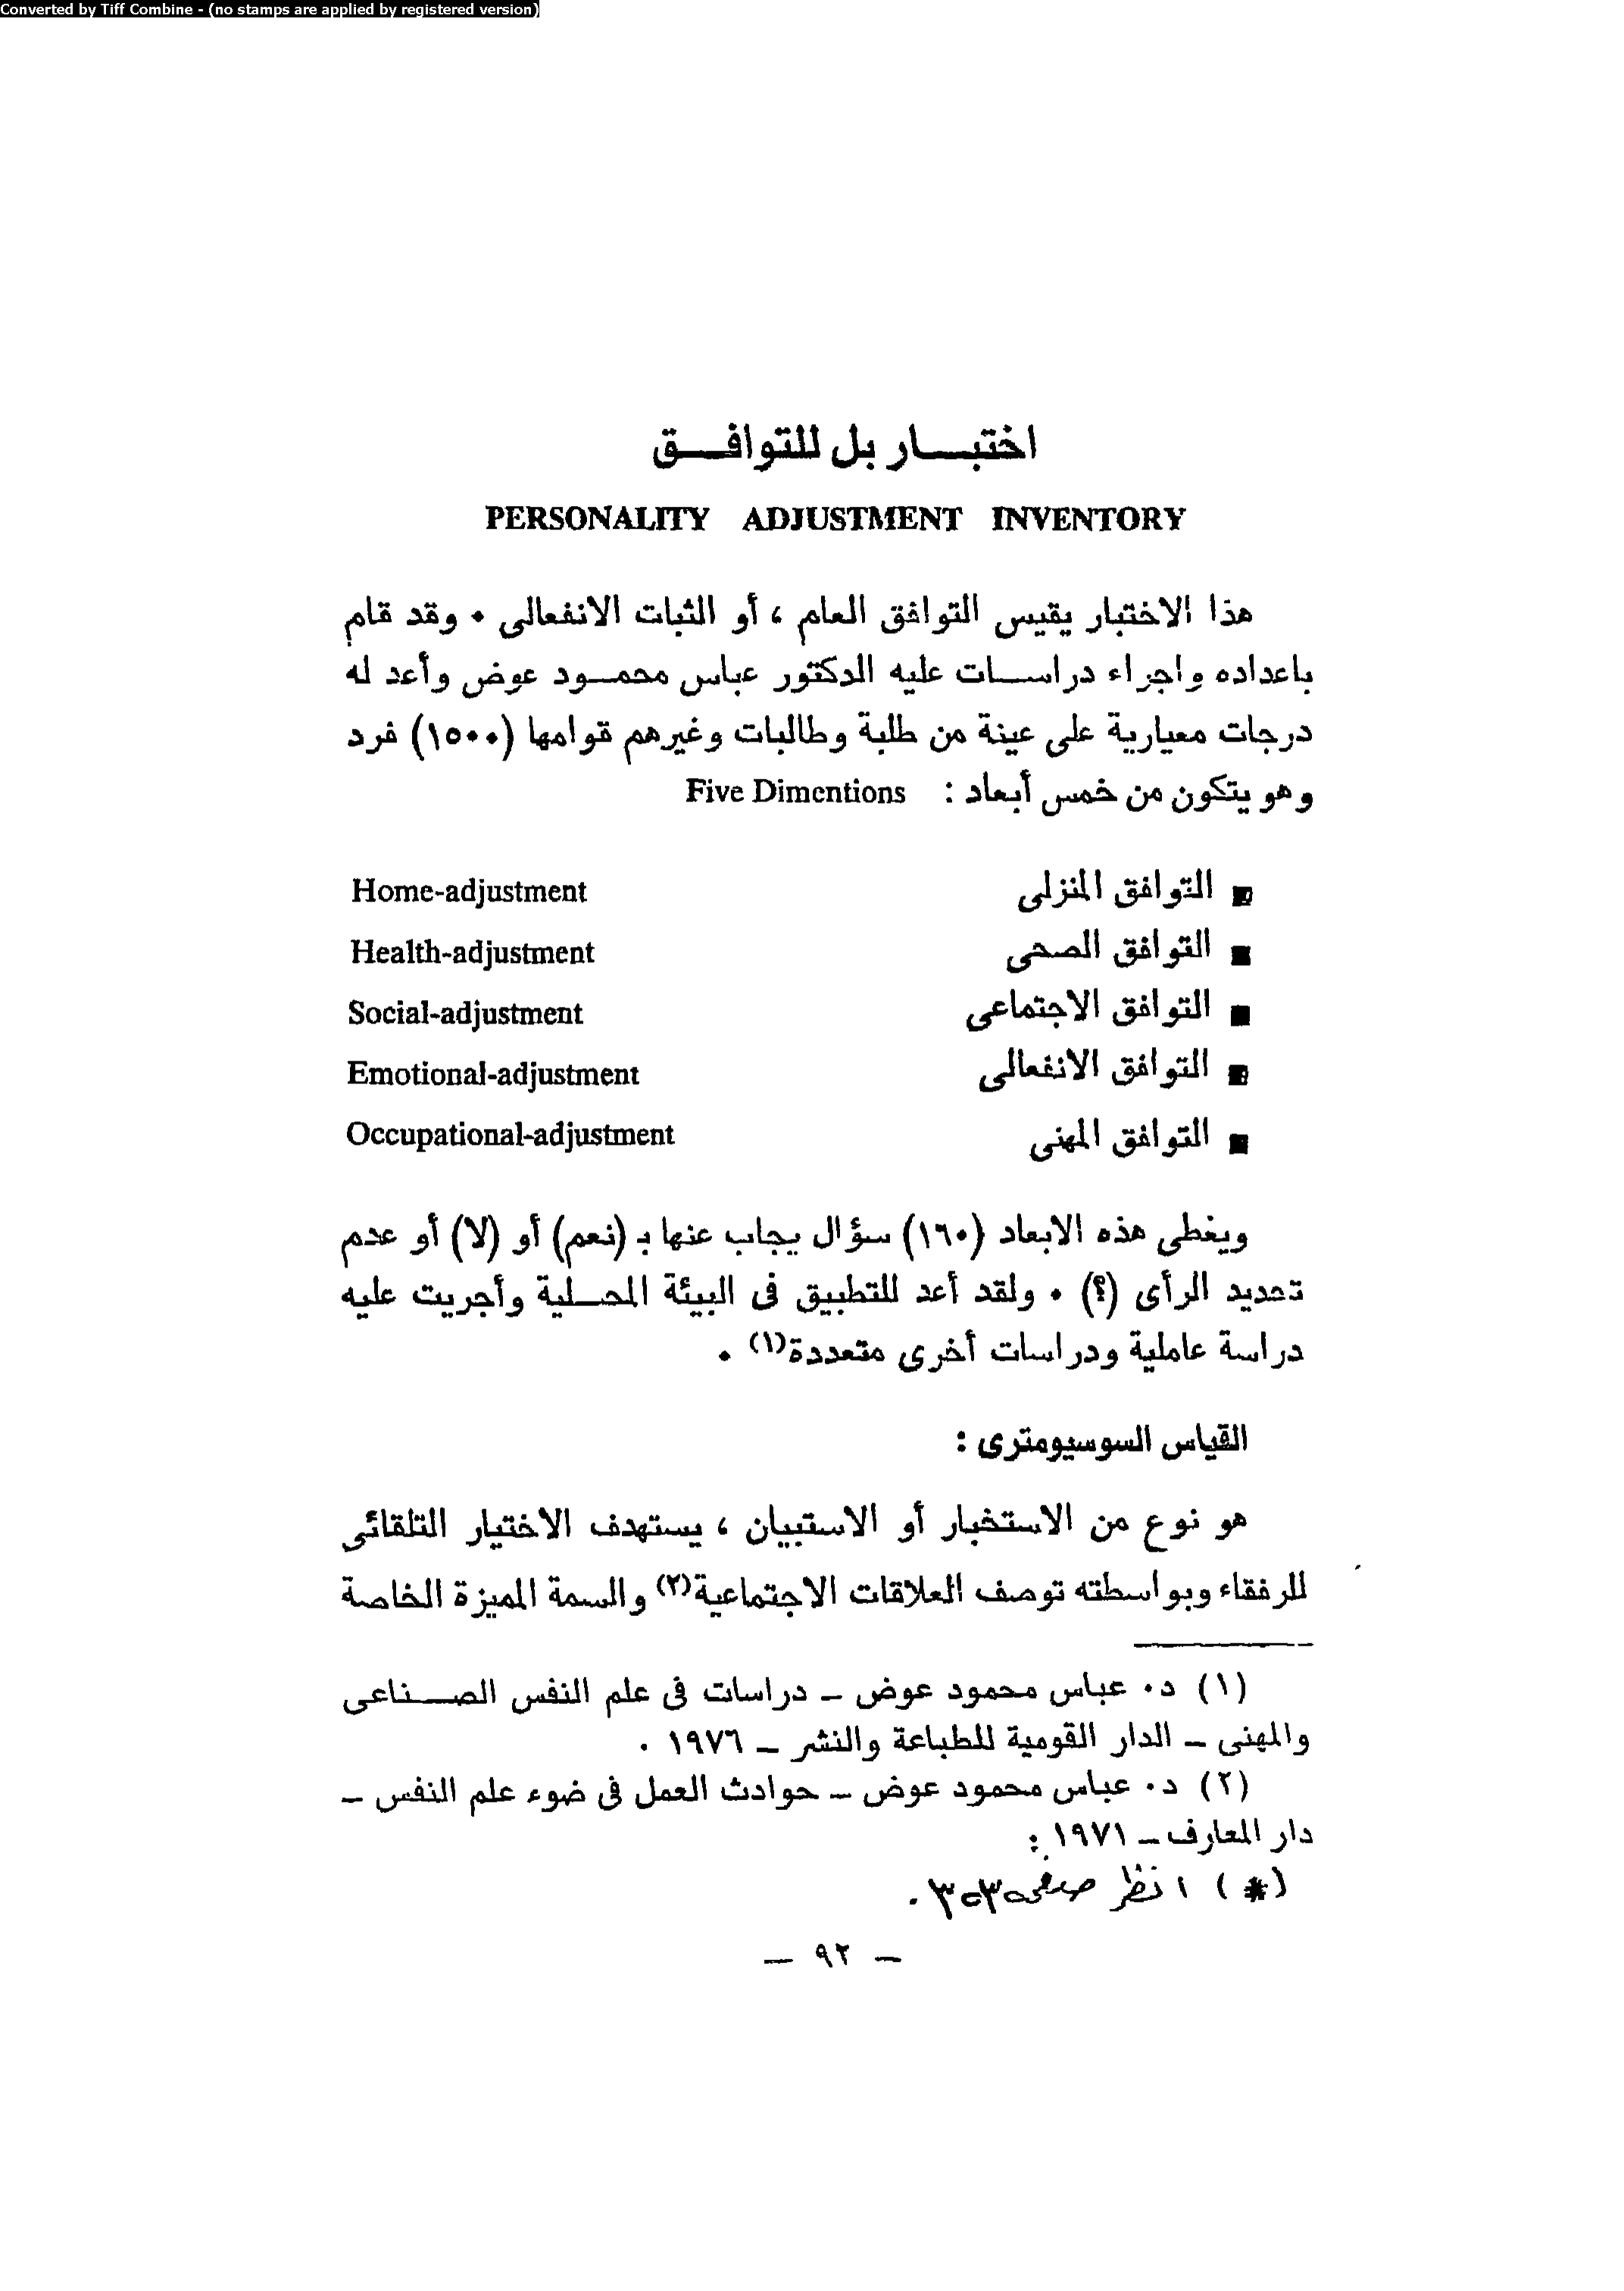 Converted by Tiff Combine - (no stamps are applied by registered version)
اختبـــار بل للتوافـــق
PERSONALITY ADJUSTMENT INVENTORY
هذا الاختبار يقيس التوافق العام ، أو الثبات الانفعالى ٠ وقد قام
باعداده واجراء دراســات عليه الدكتور عباس محمــود عوض وأعد له
درجات معيارية على عينة من طلبة وطالبات وغيرهم قوامها (١٥٠٠) فرد
وهو يتكون من خمس أبعاد : Five Dimentions
■ التوافق المنزلى Home-adjustment
■ التوافق الصحى Health-adjustment
■ التوافق الاجتماعى Social-adjustment
■ التوافق الانفعالى Emotional-adjustment
■ التوافق المهنى Occupational-adjustment
ويغطى هذه الابعاد (١٦٠) سؤال يجاب عنها بـ (نعم) أو (لا) أو عدم
تحديد الرأى (؟) ٠ ولقد أعد للتطبيق فى البيئة المحــلية وأجريت عليه
دراسة عاملية ودراسات أخرى متعددة(١) ٠
القياس السوسيومترى :
هو نوع من الاستخبار أو الاستبيان ، يستهدف الاختيار التلقائى
للرفقاء وبواسطته توصف العلاقات الاجتماعية(٢) والسمة المميزة الخاصة
(١) د٠ عباس محمود عوض – دراسات فى علم النفس الصــناعى
والمهنى – الدار القومية للطباعة والنشر – ١٩٧٦ ٠
(٢) د٠ عباس محمود عوض – حوادث العمل فى ضوء علم النفس –
دار المعارف – ١٩٧١ :
(*) انظر صفحة
– ٩٢ –